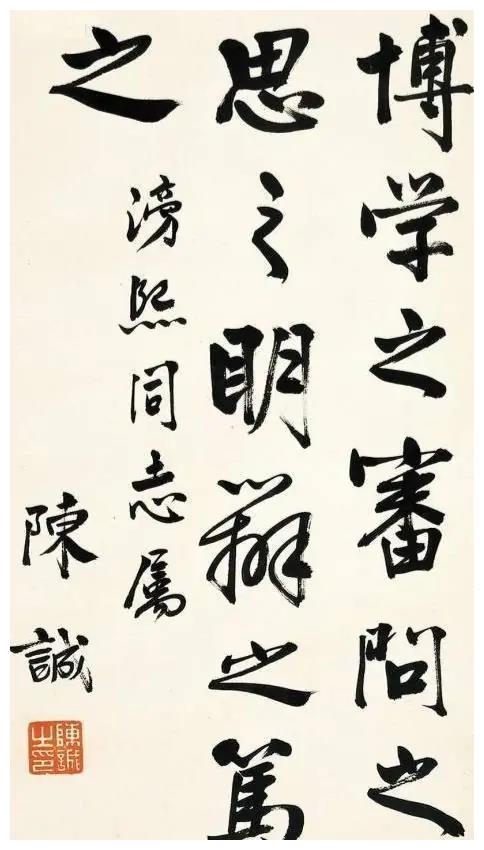 博学之審問之
思之明辨之篤
之
滂熙同志属
陳誠
陳誠之印